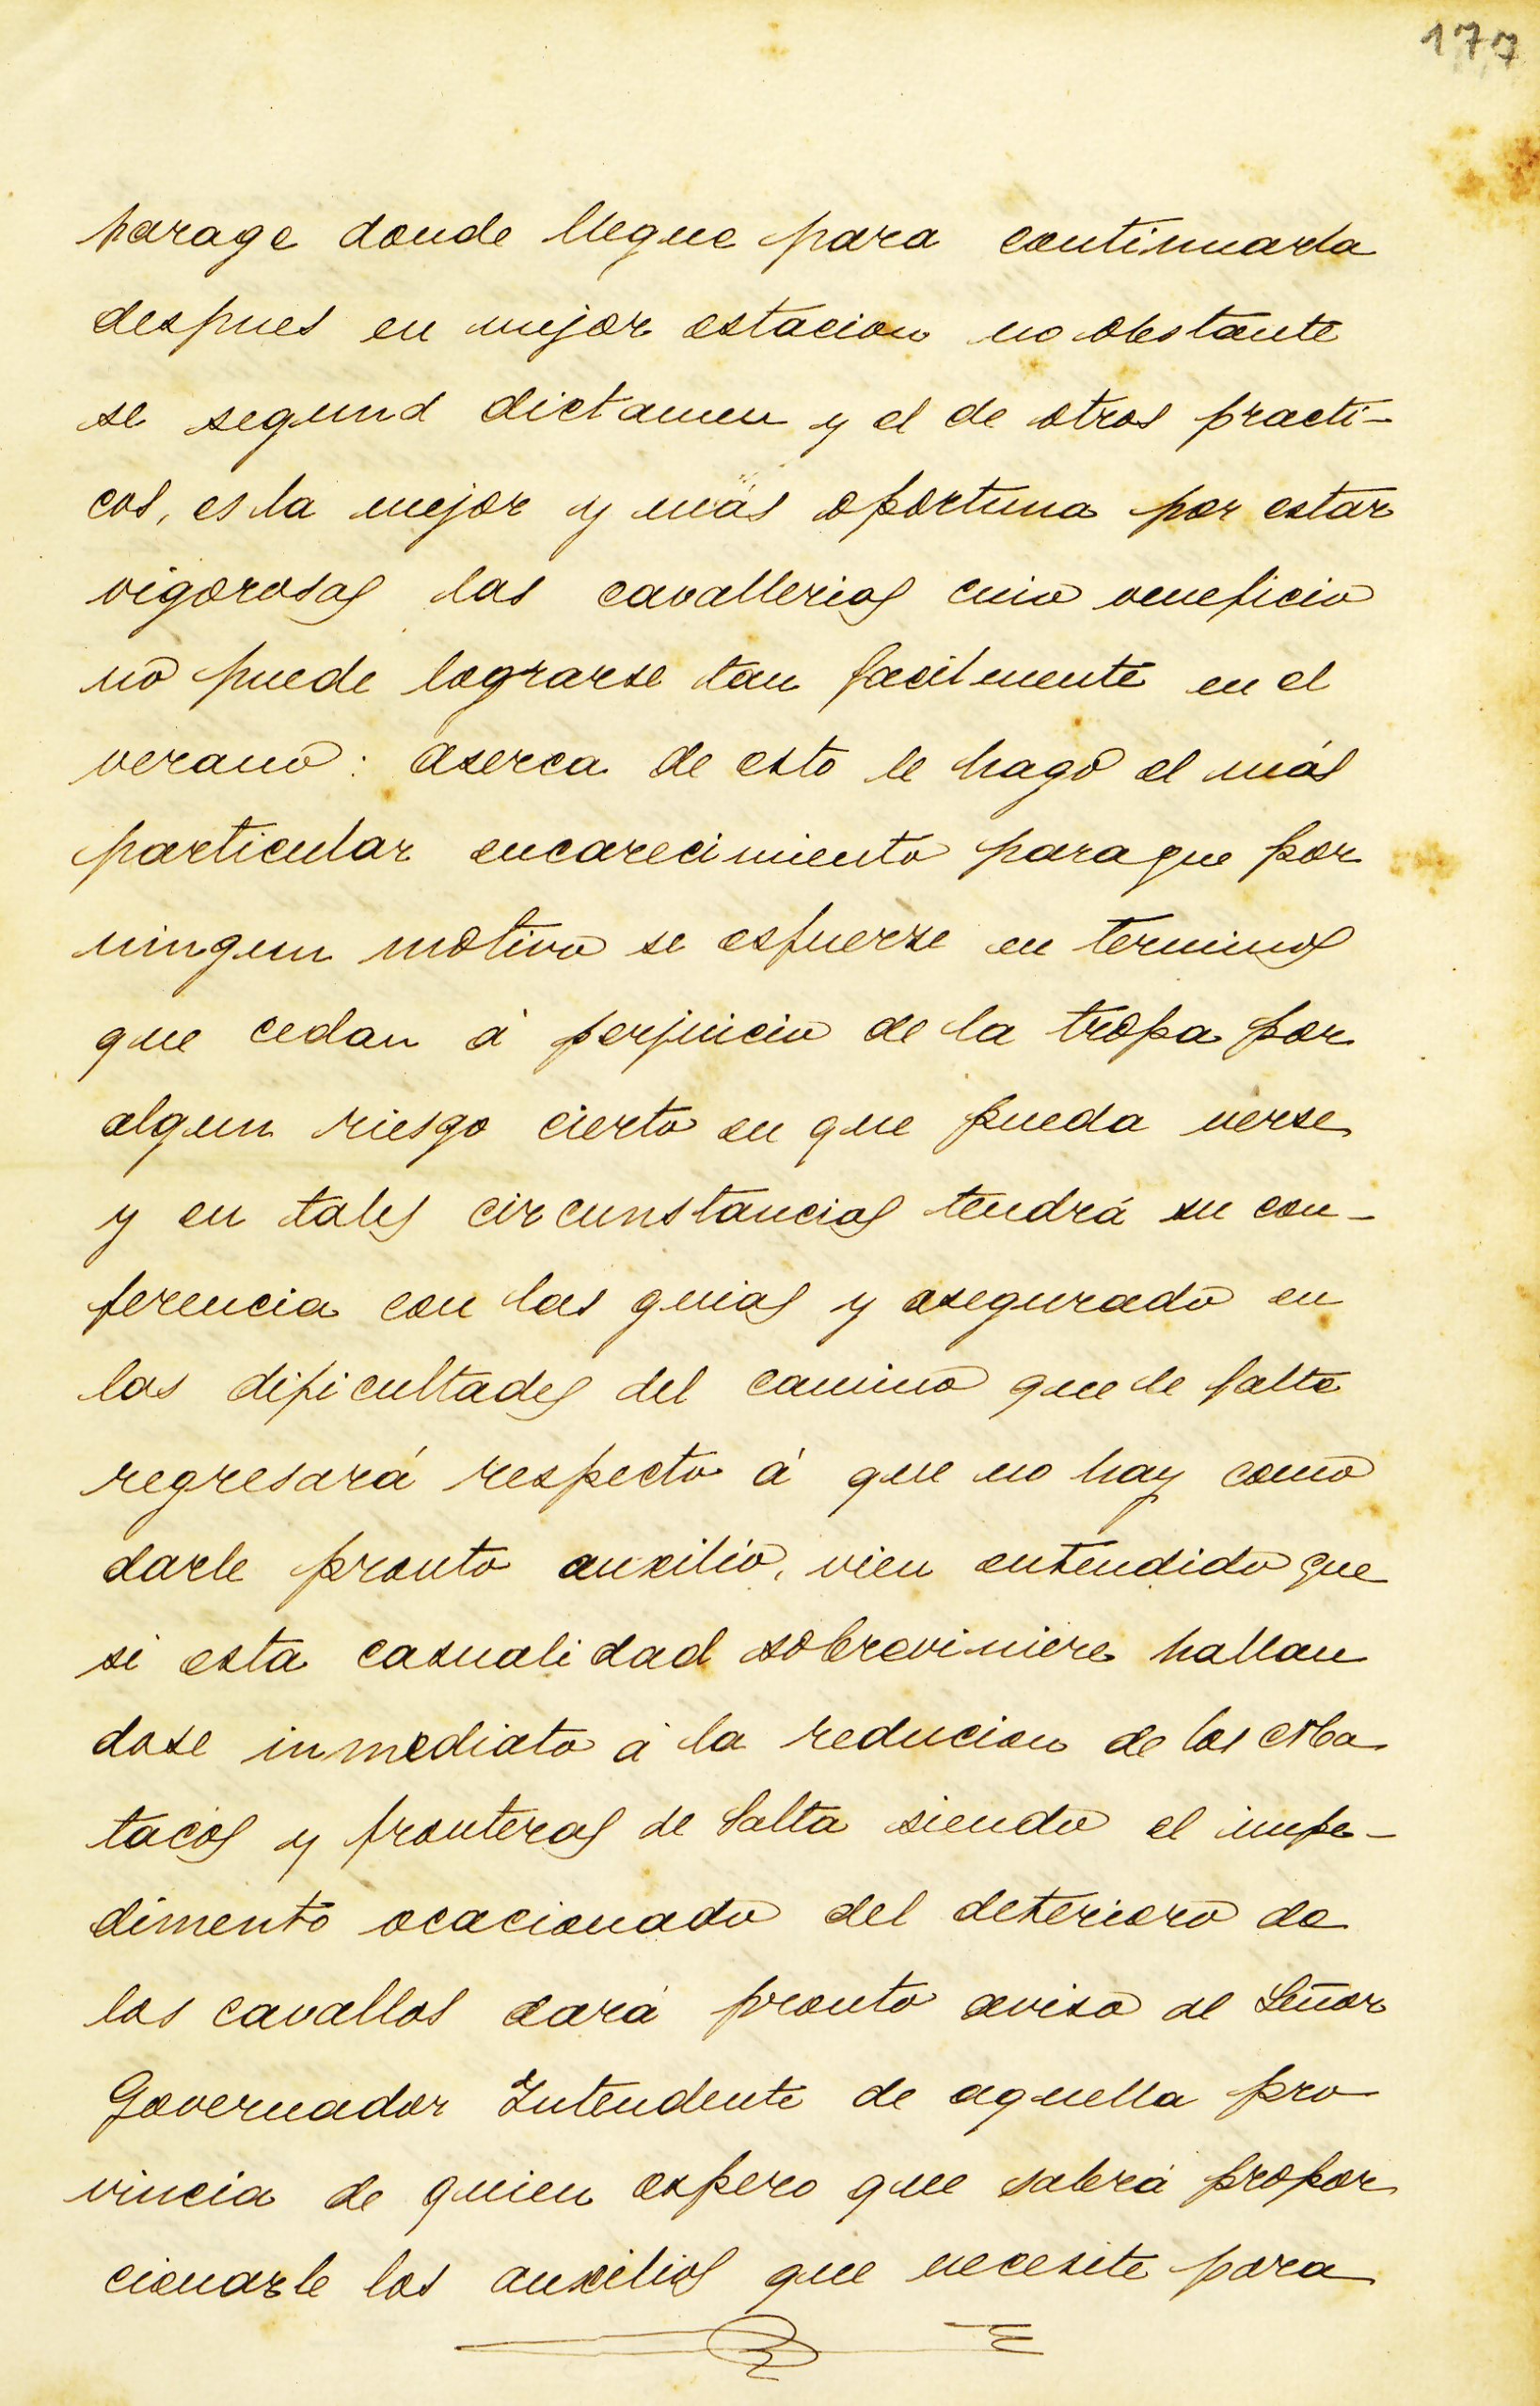 177
parage donde llegue para continuarla
despues en mejor estacion no obstante
se segund dictamen y el de otros practi-
cos, es la mejor y más oportuna por estar
vigorosas las cavallerias cuio veneficio
no puede lograrse tan facilmente en el
verano: aserca de esto le hago el más
particular encarecimiento para que por
ningun motivo se esfuerze en terminos
que cedan á perjuicio de la tropa por
algun riesgo cierto en que pueda verse
y en tales circunstancias tendrá su con-
ferencia con las guias y asegurado en
las dificultades del camino que le falte
regresará respecto á que no hay como
darle pronto auxilio, vien entendido que
si esta casualidad sobreviniere hallan
dose inmediato á la reducion de los Ma
tacos y fronteras de Salta siendo el impe-
dimento ocacionado del deterioro de
los cavallos dará pronto aviso al Señor
Governador Intendente de aquella pro
vincia de quien espero que sabrá propor
cionarle los auxilios que necesite para